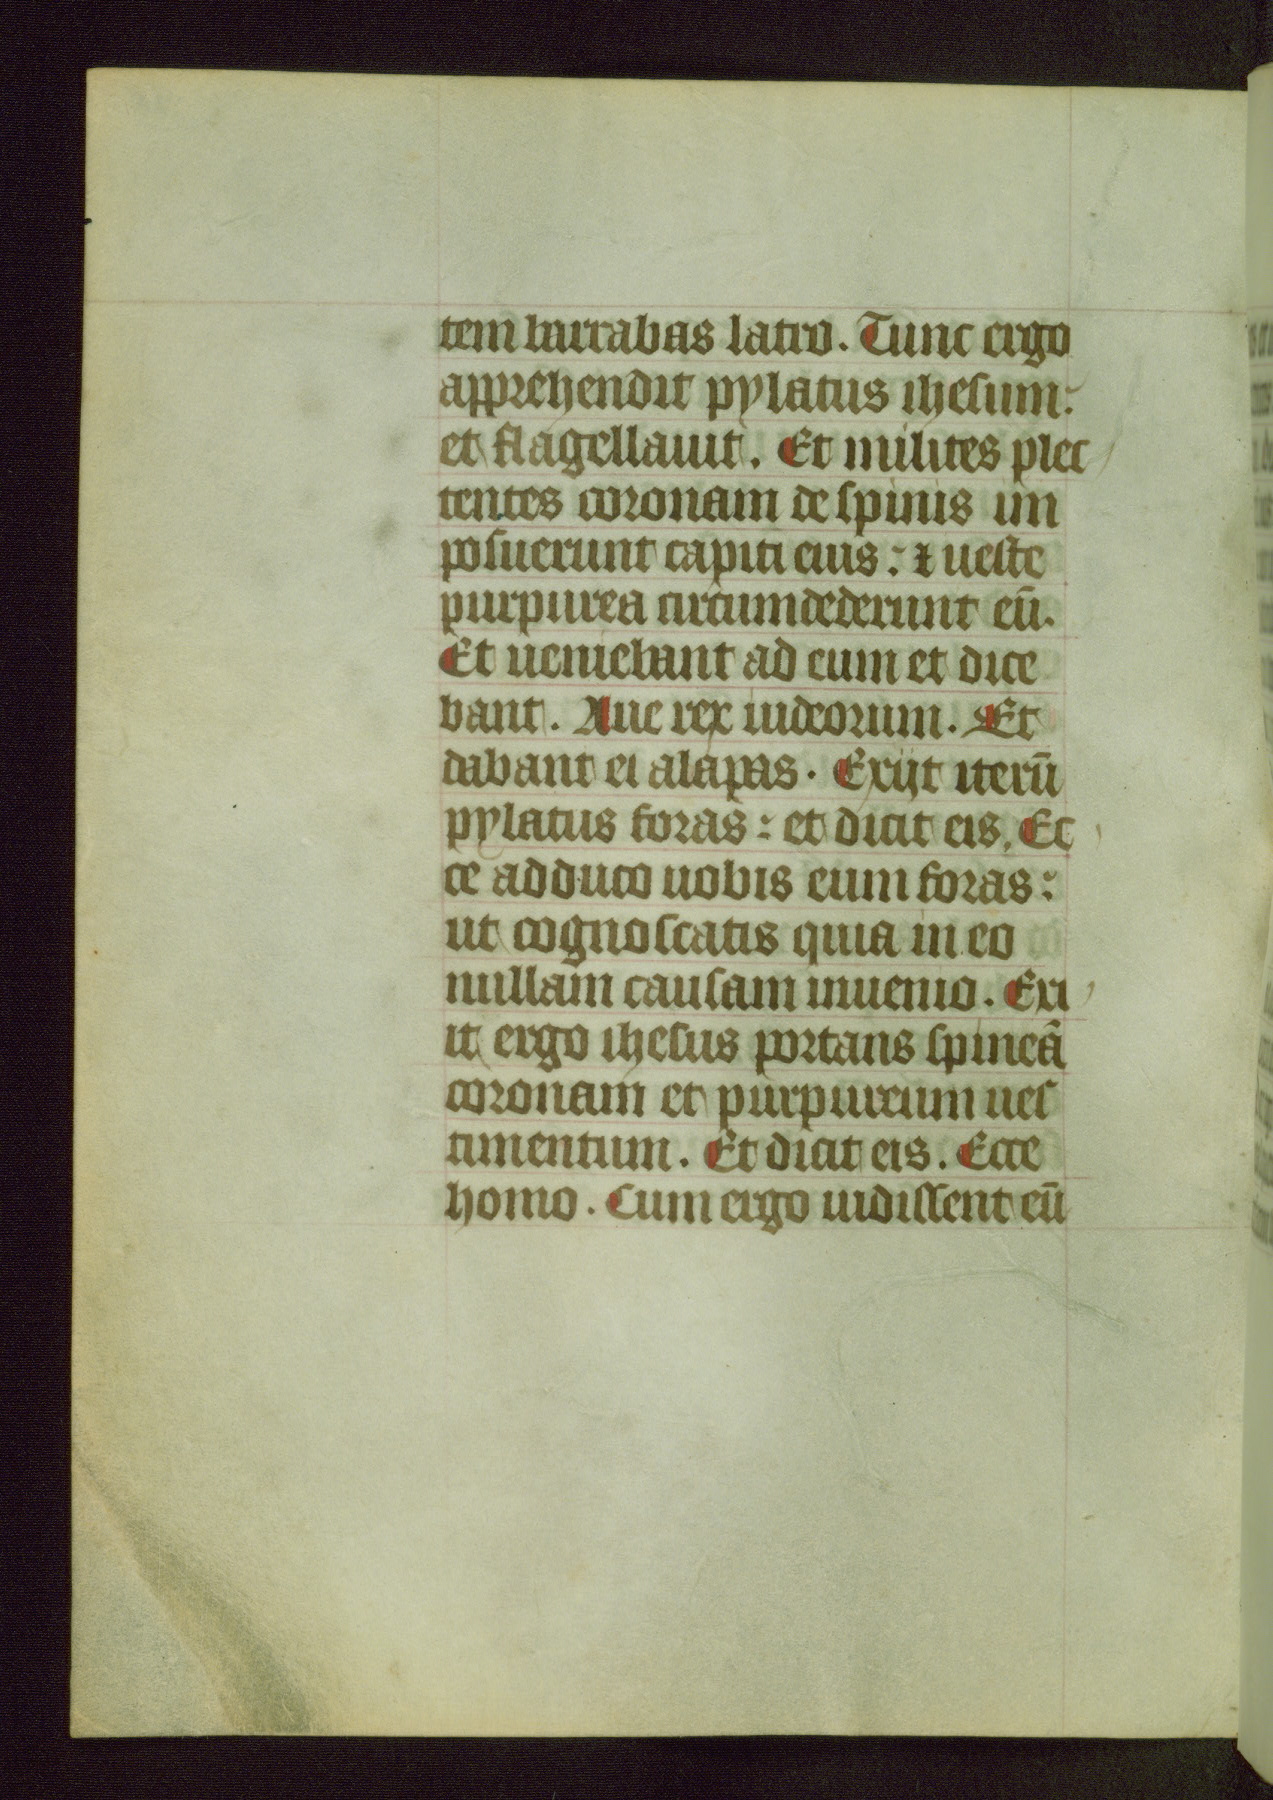 tem barrabas latro. Tunc ergo
apprehendit pylatus ihesum:
et flagellauit. Et milites plec
tentes coronam de spinis im
posuerunt capiti eius: ⁊ ueste
purpurea circumdederunt eū.
Et ueniebant ad eum et dice
bant. Aue rex iudeorum. Et
dabant ei alapas. Exijt iterū
pylatus foras: et dicit eis. Ec
ce adduco uobis eum foras:
ut cognoscatis quia in eo
nullam causam inuenio. Exi
it ergo ihesus portans spineā
coronam et purpureum ues
timentum. Et dicit eis. Ecce
homo. Cum ergo uidissent eū